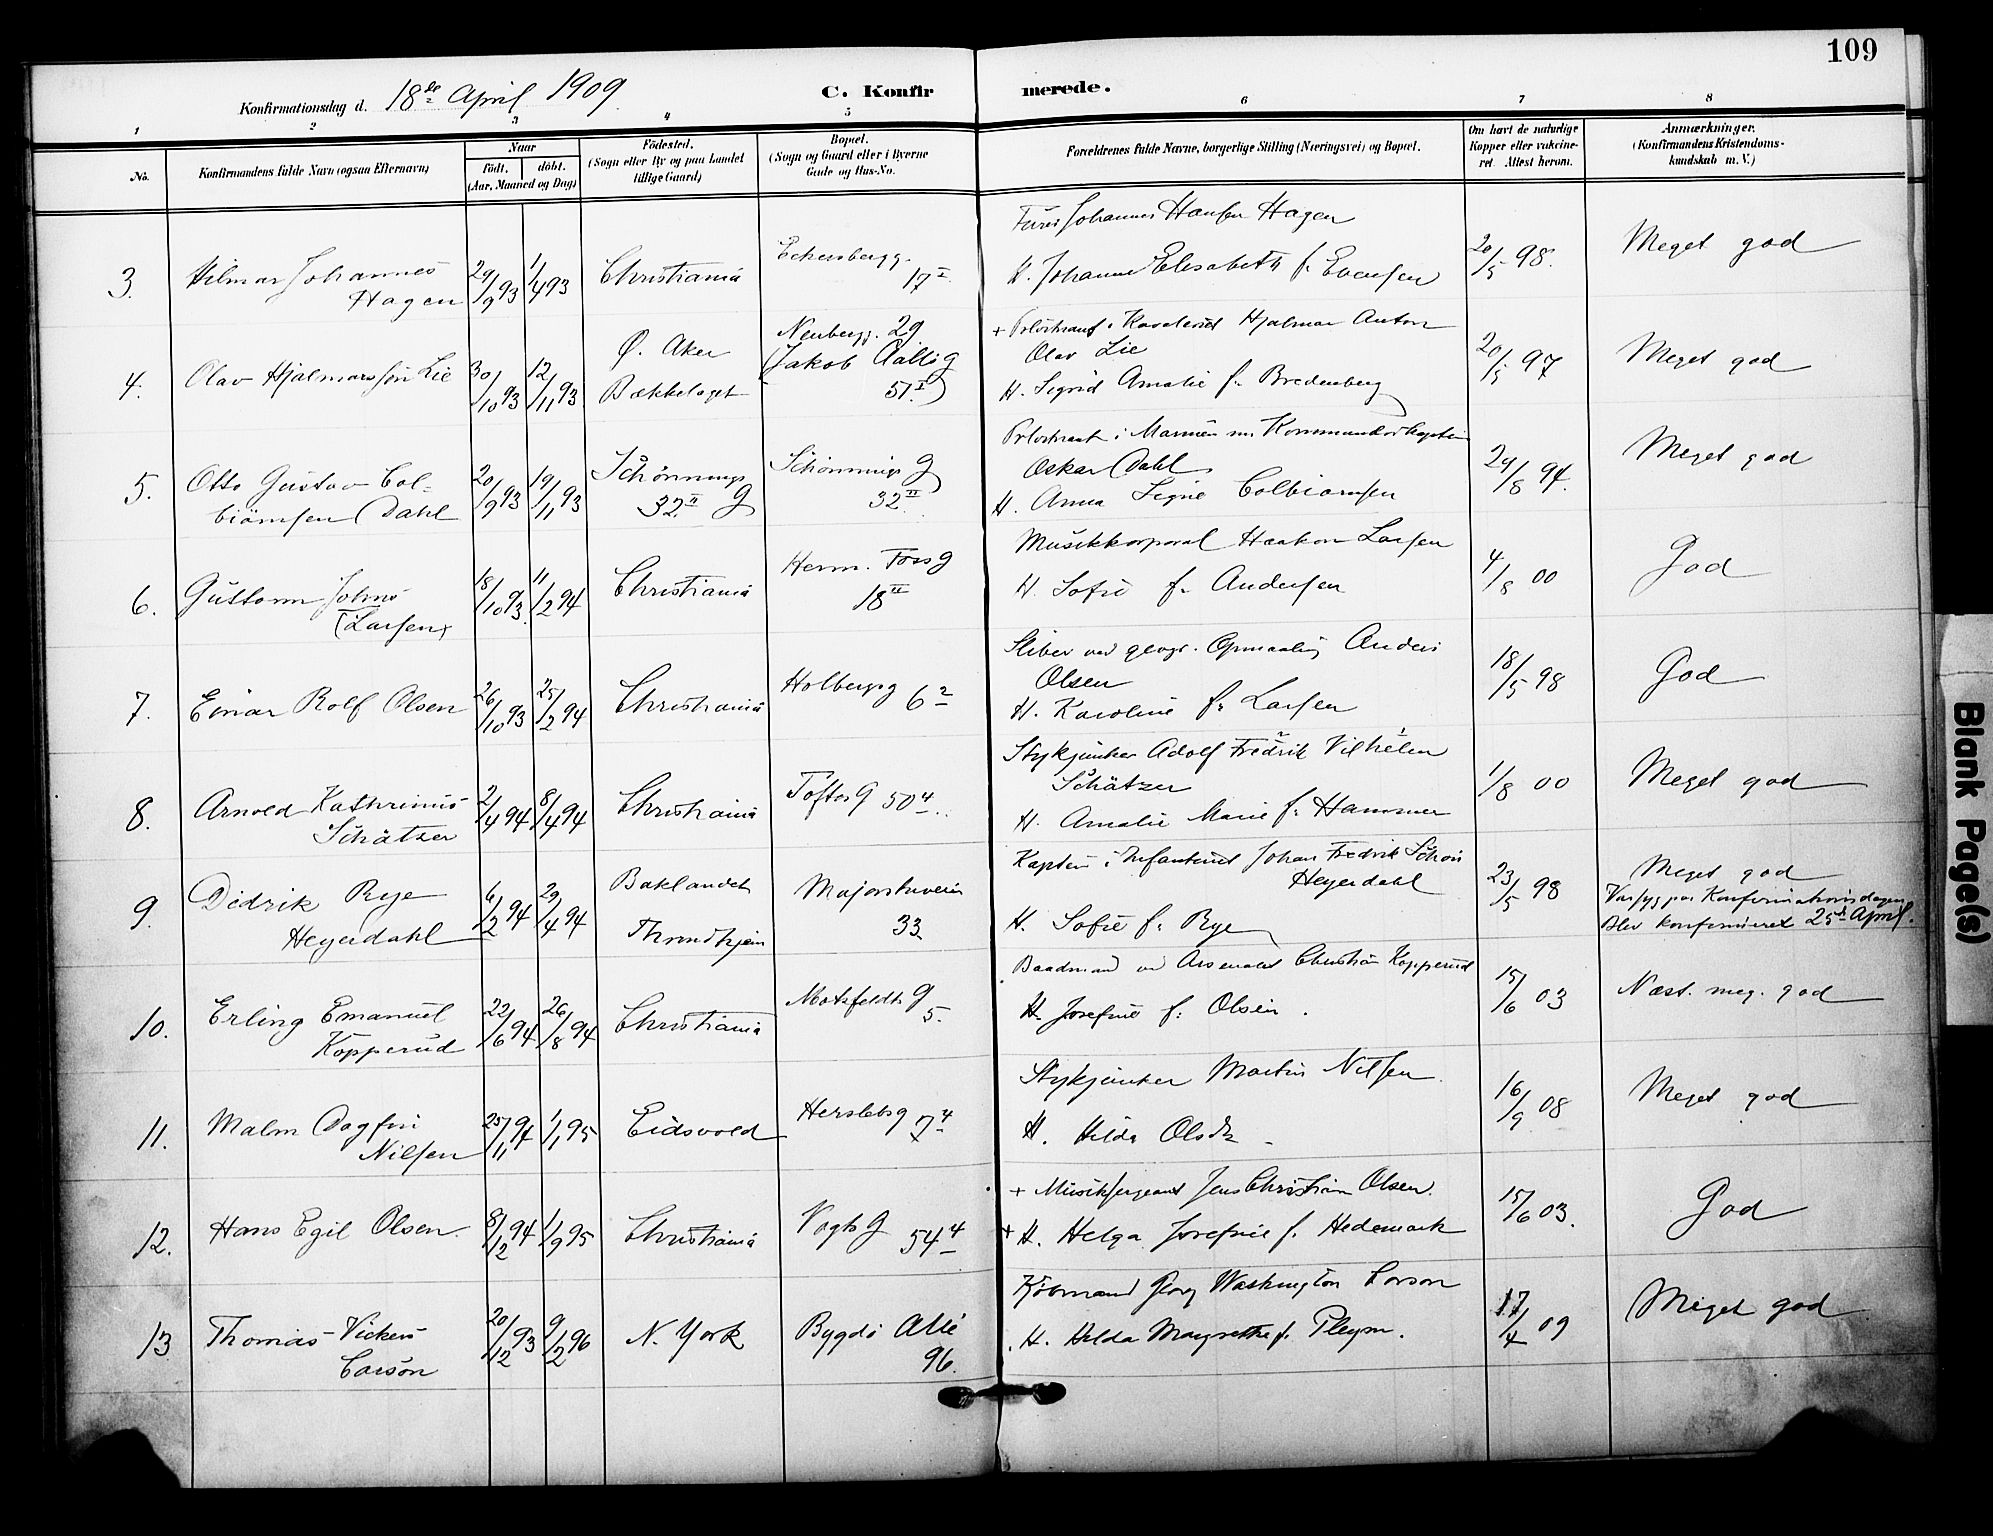 109
Konfirmationsdag d. 18de April 1909
C. Konfirmerede.
1 2 3 4 5 6 7 8
No.
Konfirmandens fulde Navn (ogsaa Efternavn)
Naar
født. døbt.
(Aar, Maaned og Dag)
Fødested.
(Sogn eller By og paa Landet
tillige Gaard)
Bopæl.
(Sogn og Gaard eller i Byerne
Gade og Hus-No.
Forældrenes fulde Navne, borgerlige Stilling (Næringsvei) og Bopæl.
Om havt de naturlige
Kopper eller vakcine-
ret. Attest herom.
Anmærkninger.
(Konfirmandens Kristendoms-
kundskab m. V.)
Furer Johannes Hansen Hagen
3. Hilmar Johannes 29/9 93 1/4 93 Christiania Eckersbergg. 20/5 98. Meget god
Hagen 17 I H. Johanne Elisabeth f. Evensen
Neubergg. 29 + Prløitnant i Kavaleriet Hjalmar Anton
4. Olav Hjalmarssøn Lie 30/10 93 12/11 93 Ø. Aker (Jakob Aallsg Olav Lie 20/5 97 Meget god
Bækkelaget 51 I) H. Sigrid Amalie f. Bredenberg
Prløitnant i Marinen m. Kommandørkaptein
5. Otto Gustav Col- 20/9 93 19/11 93 Schønnings Schønnings g Oskar Dahl 29/8 94. Meget god
biørnsen Dahl 32 II g 32 II H. Anna Signe Colbiørnsen
Musikkorporal Haakon Larsen
6. Guttorm Johns 18/10 93. 11/2 94 Christiania Herm. Foss g 4/8 00 God
(Larsen) 18 II H. Sofie f. Andersen
Skiber ved geogr. Opmaaling Anders
7. Einar Rolf Olsen 26/10 93 25/2 94 Christiania Holbergsg 6 2 Olsen 18/5 98 God
H. Karoline f. Larsen
Stykjunker Adolf Fredrik Vilhelm
8. Arnold Kathrinus 2/4 94 8/4 94 Christiania Toftes g 50 4 Schätzer 1/8 00 Meget god
Schätzer H. Amalie Marie f. Hammer
Kaptein i Infanteriet Johan Fredrik Schou
9. Didrik Rye 6/2 94 29/4 94 Baklandet Majorstuveien Heyerdahl 23/5 98 Meget god
Heyerdahl Throndhjem 33 H. Sofie f. Rye
Var syg paa Konfirmationsdagen
Blev konfirmeret 25de April.
Baadmand ved Arsenalet Christian Kopperud
10. Erling Emanuel 22/6 94 26/8 94 Christiania Motzfeldts g 15/6 03 Næst. meg. god
Kopperud 5. H. Josefine f. Olsen.
Stykjunker Martin Nilsen
11. Malm Dagfin 25/11 94 1/1 95 Eidsvold Herslebsg 7 4 16/9 08 Meget god
Nilsen H. Hilda Olsdtr
+ Musiksergeant Jens Christian Olsen.
12. Hans Egil Olsen. 8/12 94 1/9 95 Christiania Vogts g 54 4 15/6 03. God
+ H. Helga Josefine f. Hedemark
Kjøbmand Georg Washington Corson
13 Thomas Vickers 20/12 93 9/2 96 N. York Bygdø Allé 17/4 09 Meget god
Corson 96. H. Hilda Margrethe f. Pleym.
Blank Page(s)